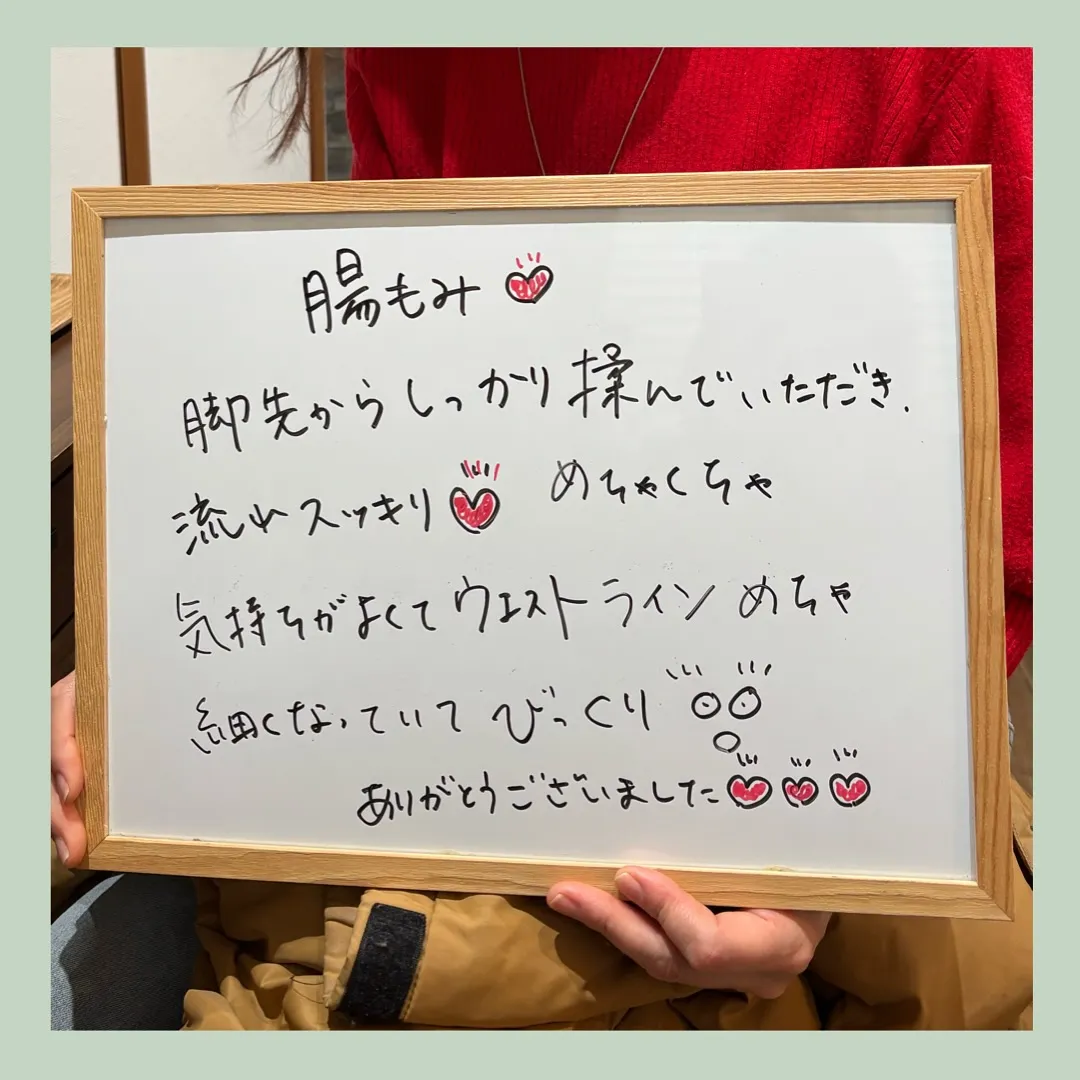 腸もみ
脚先からしっかり揉んでいただき、
流れスッキリ めちゃくちゃ
気持ちがよくてウエストライン めちゃ
細くなっていて びっくり
ありがとうございました